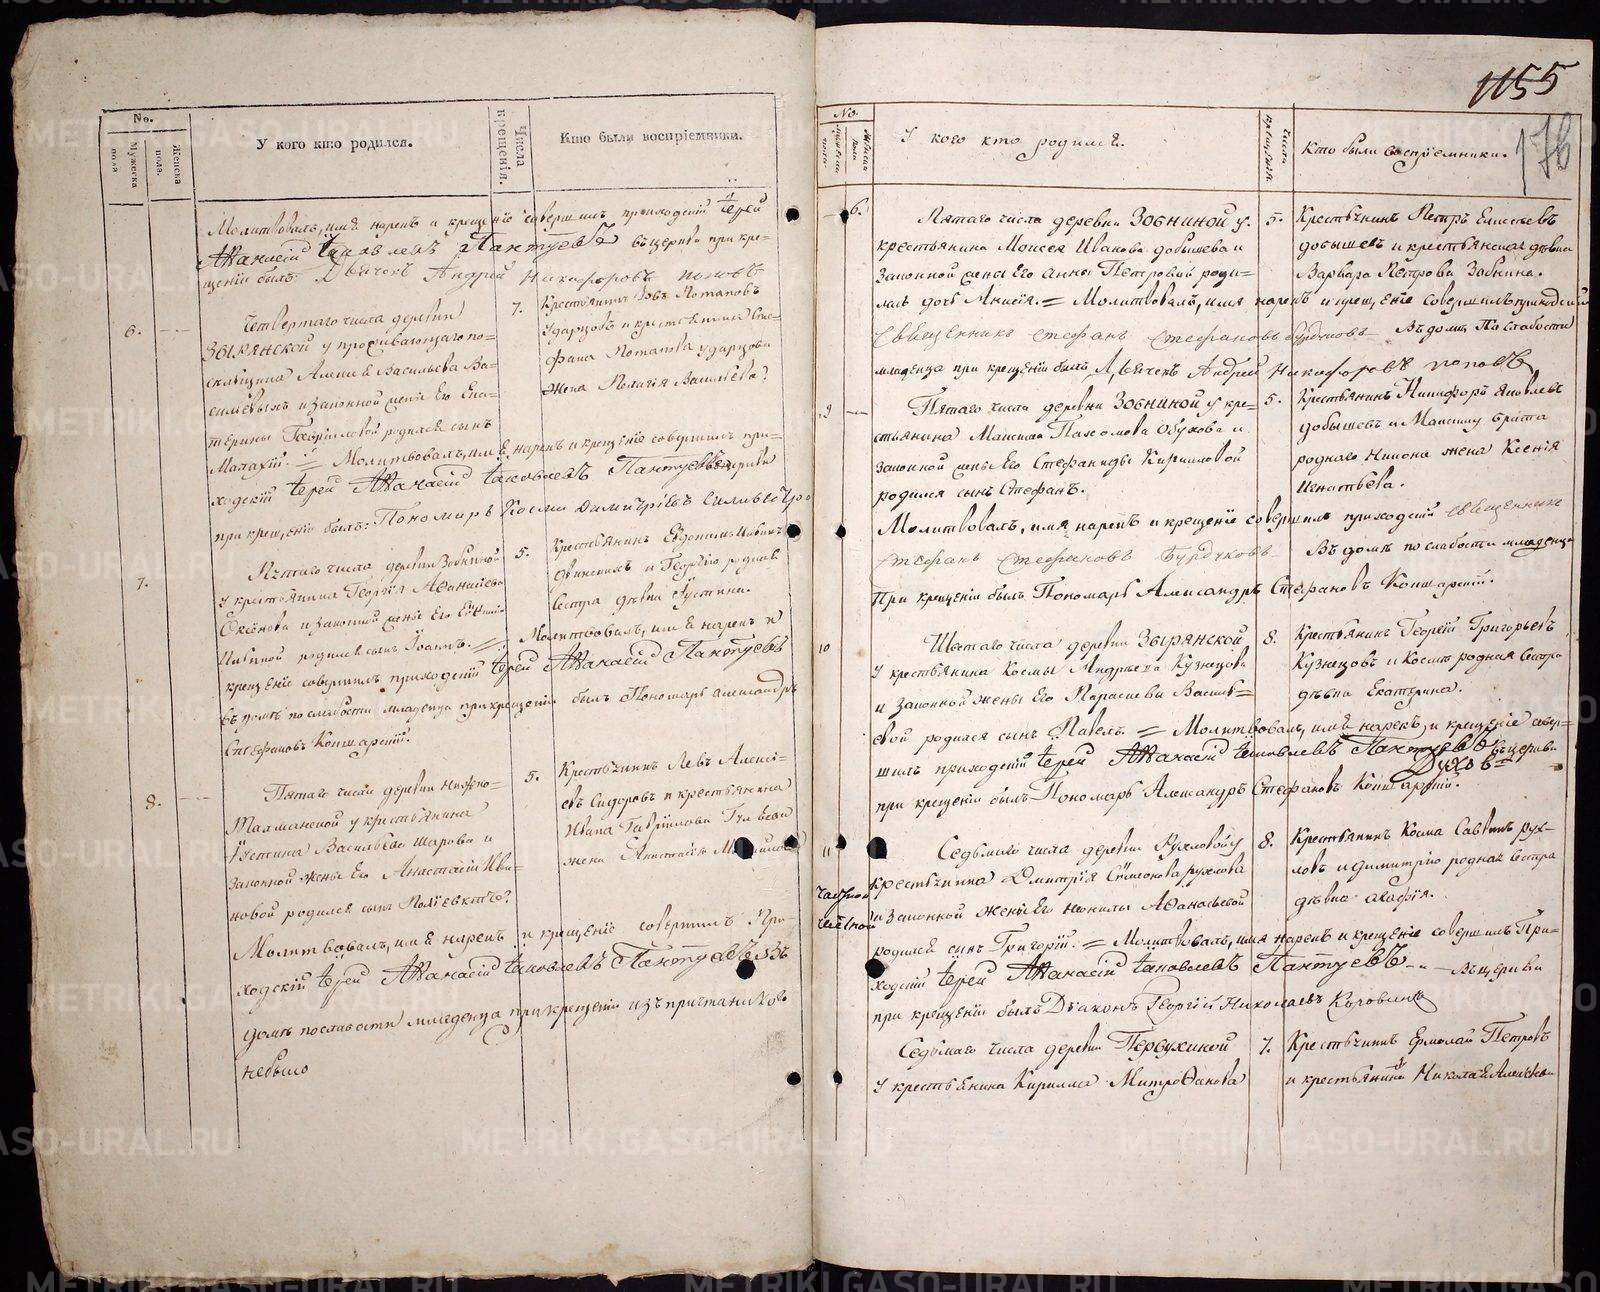 No.
Мужеска пола
Женска пола.
У кого кто родился.
Числа крещенія.
Кто были воспріемники.
Молитвовалъ, имя нарекъ и крещеніе совершилъ приходскій Іерей
Аѳанасій Іаковлевъ Пантуевъ въ церкви при кре-
щеніи былъ: Дьячекъ Андрей Никифоровъ Поповъ
6.
Четвертаго числа деревни
Зырянской у проживающаго по-
Василья Ва-
сильевыхъ и законной жены Его Ека-
терины Гавриловой родился сынъ
Малахій. = Молитвовалъ, имя нарекъ и крещеніе совершилъ при-
ходскій Іерей Аѳанасій Іаковлевъ Пантуевъ в церкви
при крещеніи былъ: Пономарь Косма Димитріевъ
7.
Крестьянинъ Іовъ Потаповъ
Ударцовъ и крестьянина Сте-
фана Потапова Ударцова
жена Пелагія Васильева.
7.
Пятаго числа деревни Зобниной
у крестьянина Георгія Аѳанасьева
и законной жены Его
родился сынъ Іоаннъ. = Молитвовалъ, имя нарекъ и
крещеніе совершилъ приходскій Іерей Аѳанасій Пантуевъ
въ домѣ по слабости младенца при крещеніи былъ Пономарь Александръ
Стефановъ Кошарскій.
5.
Крестьянинъ
и Георгію родная
сестра дѣвка Іустина.
8.
Пятаго числа деревни Нижно-
Талманской у крестьянина
Іустина Васильева Шарова и
законной жены Его Анастасіи Ива-
новой родился сынъ Поліевктъ.
Молитвовалъ, имя нарекъ и крещеніе совершилъ При-
ходскій Іерей Аѳанасій Іаковлевъ Пантуевъ въ
домѣ по слабости младенца при крещеніи изъ причетниковъ
небыло
5.
Крестьянинъ Левъ Алексѣ-
евъ Сидоровъ и крестьянина
Ивана Гаврилова
жена Анастасія
1155
176
No.
У кого кто родился.
Числа крещенія.
Кто были воспріемники.
6.
Пятаго числа деревни Зобниной у
крестьянина Моисея Иванова Добышева и
законной жены Его Анны Петровой роди-
лась дочь Анисія. = Молитвовалъ, имя нарекъ и крещеніе совершилъ приходскій
Священникъ Стефанъ Стефановъ Бурдуковъ въ домѣ по слабости
младенца при крещеніи былъ Дьячекъ Андрей Никифоровъ Поповъ
5.
Крестьянинъ Петръ Елисѣевъ
Добышевъ и крестьянская дѣвка
Варвара Петрова Зобнина.
9
Пятаго числа деревни Зобниной у кре-
стьянина Максима Пахомова Обухова и
законной жены Его Стефаниды Кирилловой
родился сынъ Стефанъ.
Молитвовалъ, имя нарекъ и крещеніе совершилъ приходскій Священникъ
Стефанъ Стефановъ Бурдуковъ въ домѣ по слабости младенца
При крещеніи былъ Пономарь Александръ Стефановъ Кошарскій.
5.
Крестьянинъ Никифоръ Яковлевъ
Добышевъ и Максиму брата
роднаго Никона жена Ксенія
Игнатьева.
10
Шестаго числа деревни Зырянской
у крестьянина Космы Андреева Кузнецова
и законной жены Его Параскевы Василь-
евой родился сынъ Павелъ. = Молитвовалъ, имя нарекъ, и крещеніе совер-
шилъ приходскій Іерей Аѳанасій Іаковлевъ Пантуевъ въ церкви
при крещеніи былъ Пономарь Александръ Стефановъ Кошарскій.
8.
Крестьянинъ Георгій Григорьевъ
Кузнецовъ и Космѣ родная сестра
дѣвка Екатерина.
11
Седьмаго числа деревни Рухловой у
крестьянина Димитрія Симеонова Рухлова
и законной жены Его Неонилы Аѳанасьевой
родился сынъ Григорій. = Молитвовалъ, имя нарекъ и крещеніе совершилъ При-
ходскій Іерей Аѳанасій Іаковлевъ Пантуевъ въ церкви
при крещеніи былъ Діаконъ Георгій Николаевъ Коровинъ
8.
Крестьянинъ Косма Саввинъ Рух-
ловъ и Димитрію родная сестра
дѣвка Агафія.
Седьмаго числа деревни Первухиной
у крестьянина Кирилла Митрофанова
7.
Крестьянинъ Ермолай Петровъ
и крестьянина Николая Алексѣева
METRIKI.GASO-URAL.RU